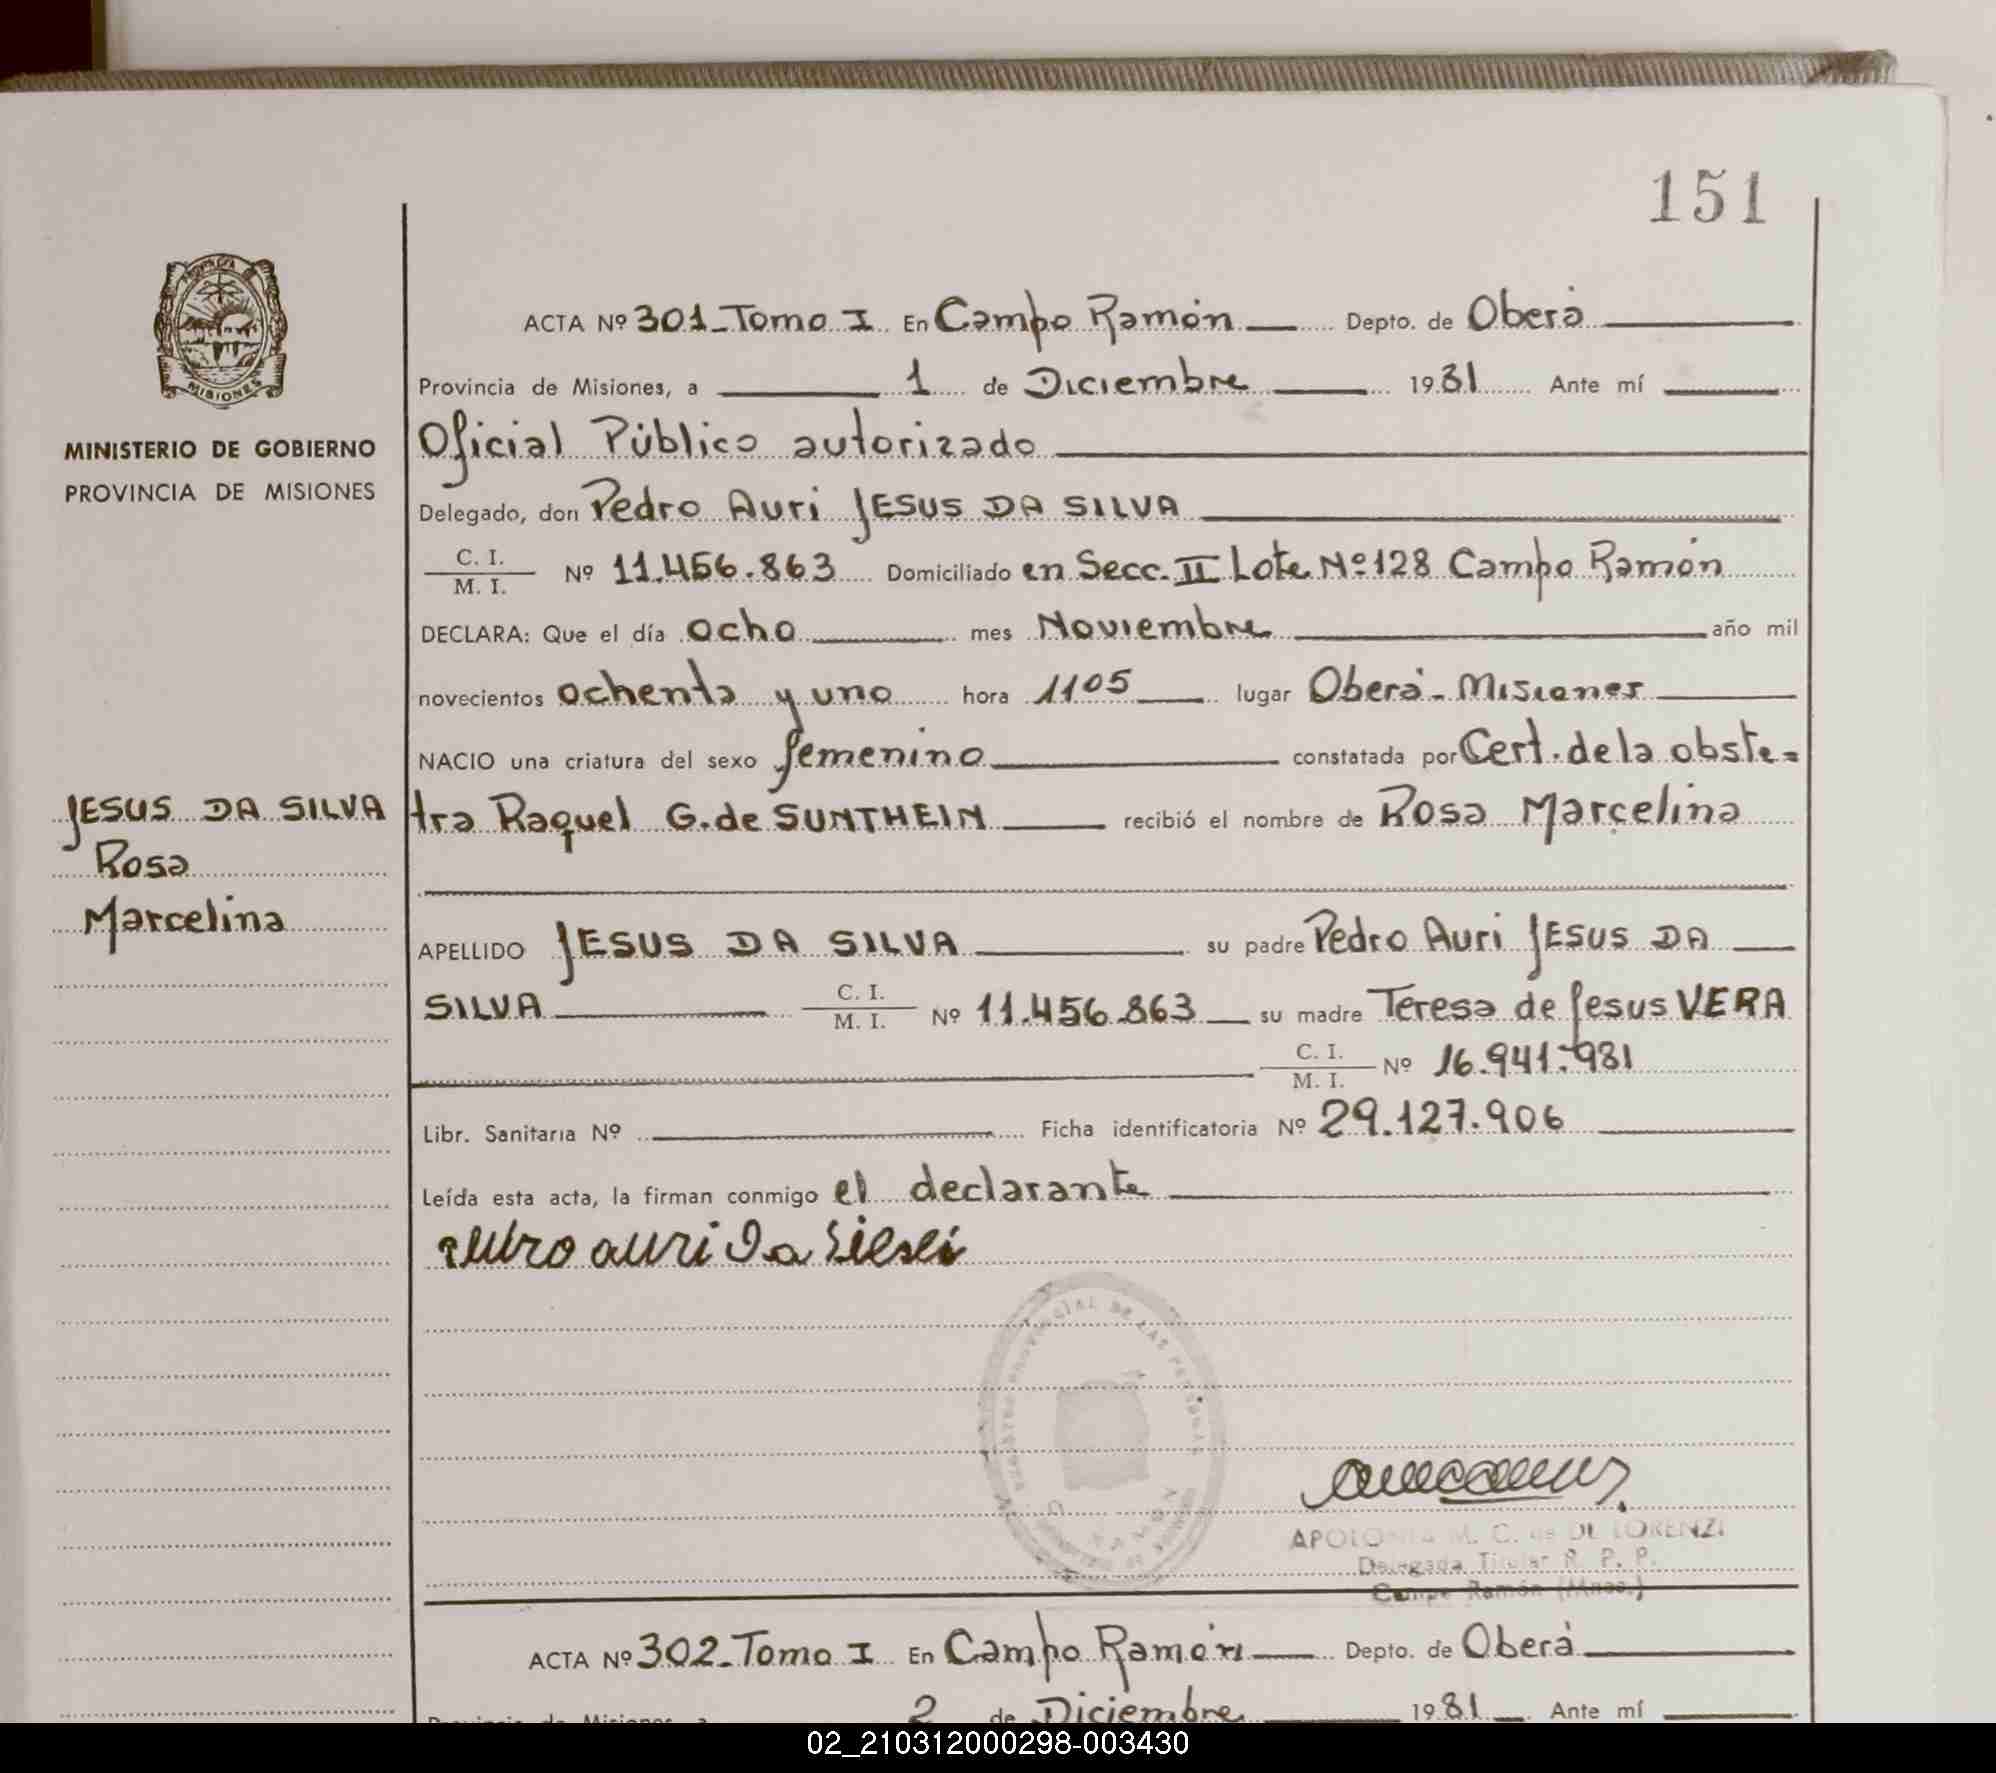 151
PROVINCIA
MISIONES
MINISTERIO DE GOBIERNO
PROVINCIA DE MISIONES
JESUS DA SILVA
Rosa
Marcelina
ACTA Nº 301_Tomo I En Campo Ramón Depto. de Oberá
Provincia de Misiones, a 1 de Diciembre 1981 Ante mí
Oficial Público autorizado
Delegado, don Pedro Auri JESUS DA SILVA
C. I.
M. I. Nº 11.456.863 Domiciliado en Secc. II Lote Nº 128 Campo Ramón
DECLARA: Que el día ocho mes Noviembre año mil
novecientos ochenta y uno hora 1105 lugar Oberá - Misiones
NACIO una criatura del sexo femenino constatada por Cert. de la obste=
tra Raquel G. de SUNTHEIN recibió el nombre de Rosa Marcelina
APELLIDO JESUS DA SILVA su padre Pedro Auri JESUS DA
SILVA C. I.
M. I. Nº 11.456.863 su madre Teresa de Jesus VERA
C. I.
M. I. Nº 16.941.981
Libr. Sanitaria Nº Ficha identificatoria Nº 29.127.906
Leída esta acta, la firman conmigo el declarante
auri Da
APOLONIA M. C. de DE LORENZI
Delegada Titular R. P. P.
Campo Ramón (Mnes.)
ACTA Nº 302_Tomo I En Campo Ramón Depto. de Oberá
Provincia de Misiones, a 2 de Diciembre 1981 Ante mí
02_210312000298-003430